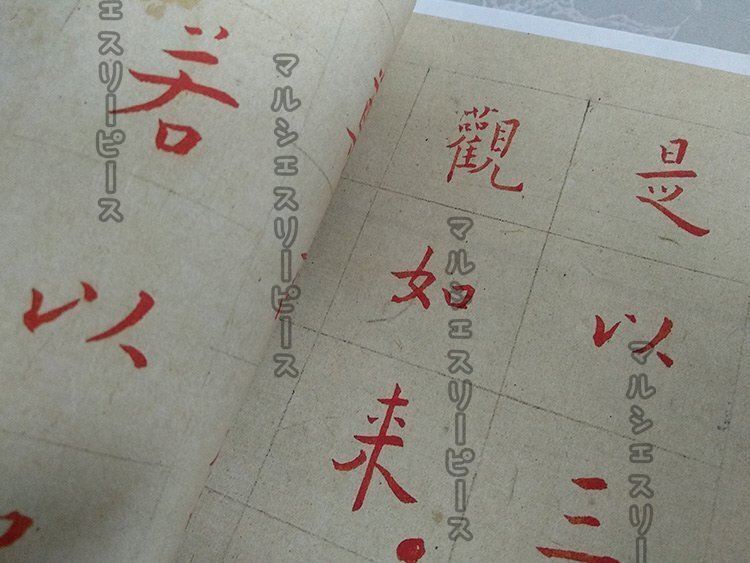 是以三
觀如来
若以
ェスリーピース
マルシェスリーピース
マルシェスリーピース
マルシェスリー